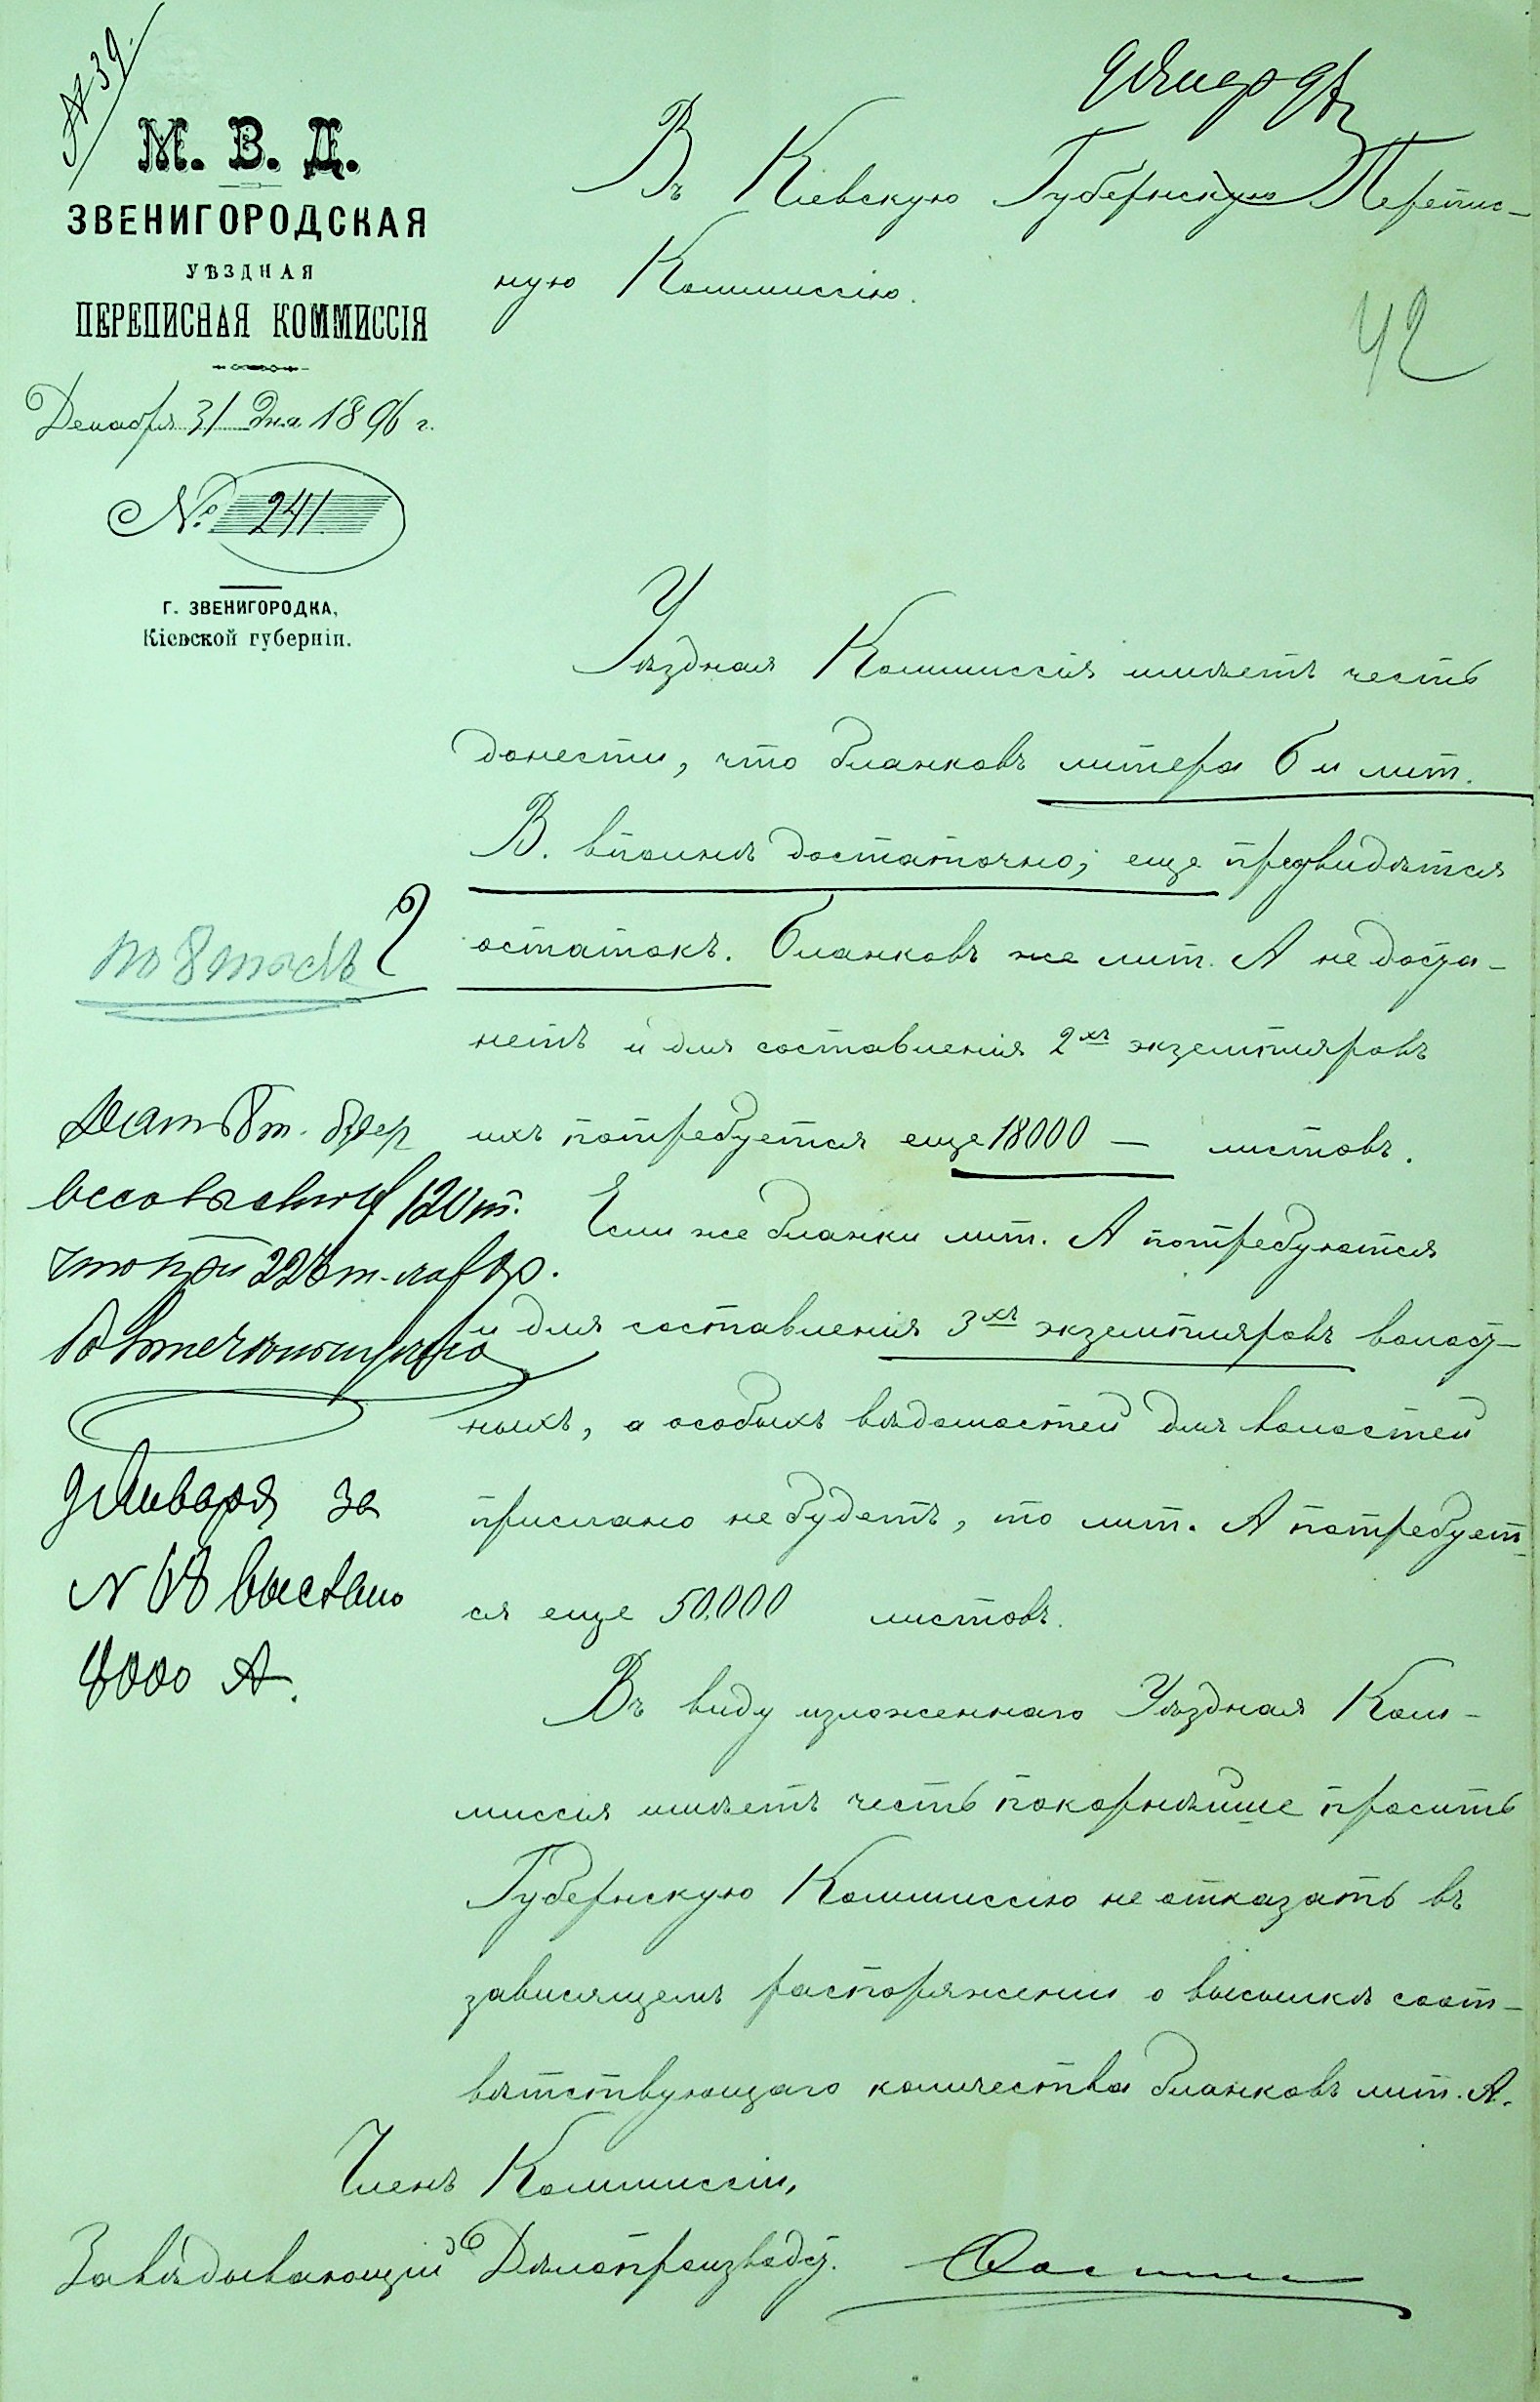 № 39.
М. В. Д.
ЗВЕНИГОРОДСКАЯ
УѢЗДНАЯ
ПЕРЕПИСНАЯ КОММИССІЯ
Декабря 31 дня 1896 г.
№ 241
Г. ЗВЕНИГОРОДКА,
Кіевской губерніи.
Въ Кіевскую Губернскую Перепис-
ную Коммиссію.
42
Уѣздная Коммиссія имѣетъ честь
донести, что бланковъ литера Б и лит.
В. вполнѣ достаточно; еще предвидѣтся
остатокъ. Бланковъ же лит. А не доста-
нетъ и для составленія 2хъ экземпляровъ
ихъ потребуется еще 18000 — листовъ.
Если же бланки лит. А потребуются
и для составленія 3хъ экземпляровъ волост-
ныхъ, а особыхъ вѣдомостей для волостей
прислано не будетъ, то лит. А потребует-
ся еще 50.000 листовъ.
Въ виду изложеннаго Уѣздная Ком-
миссія имѣетъ честь покорнѣйше просить
Губернскую Коммиссію не отказать въ
зависящемъ распоряженіи о высылкѣ соот-
вѣтствующаго количества бланковъ лит. А.
Членъ Коммиссіи,
Завѣдывающій Дѣлопроизвод.
по 8
120 т.
9 Января за
N 68 выслано
8000 А.